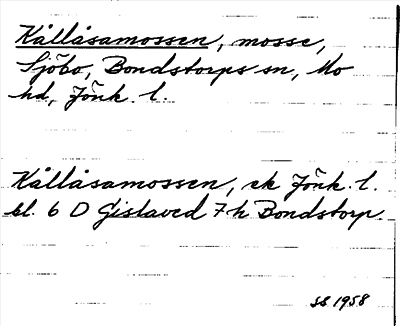 Kållåsamossen, mosse,
Sjöbo, Bondstorps sn, Mo
hd, Jönk. l.
Kållåsamossen, ek Jönk. l.
bl. 6 D Gislaved 7 h Bondstorp.
SB 1958